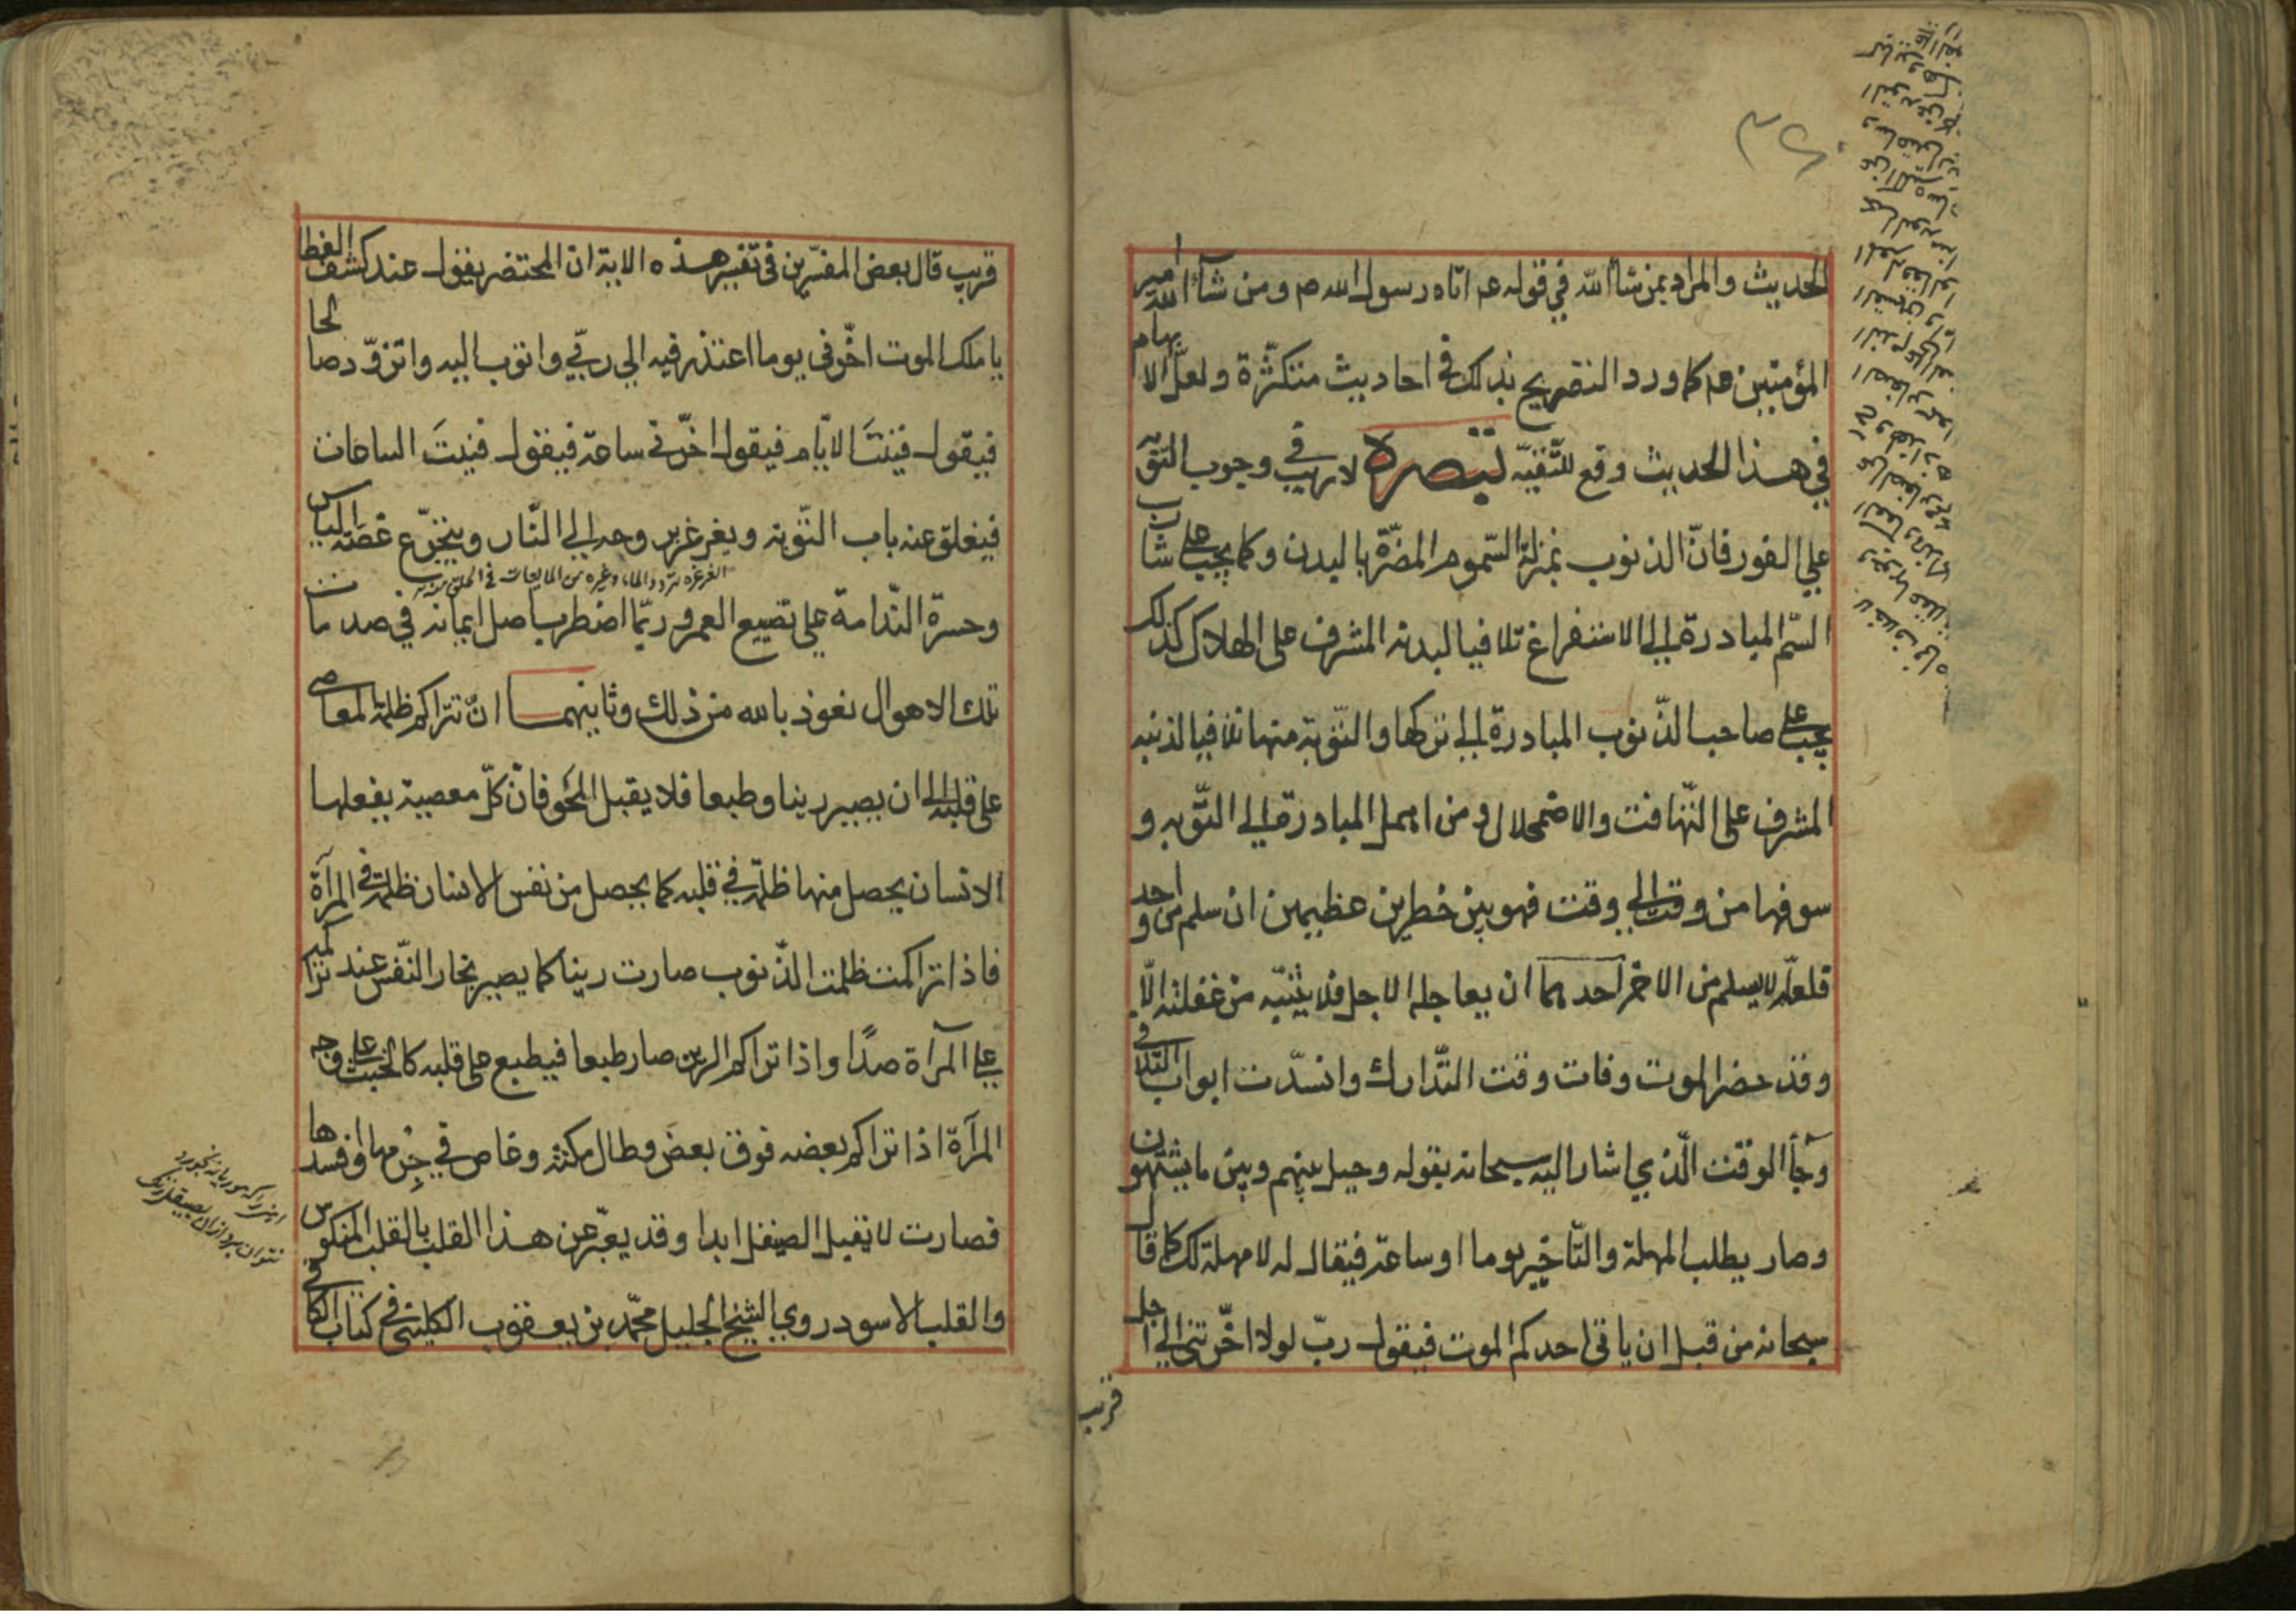 الحديث والمراد بمن شاء الله في قوله عم اتاه رسول الله ص ومن شآء الله امير
المؤمنين عم كما ورد التصريح بذلك في احاديث متكثّرة ولعلّ الابهام
في هذا الحديث وقع للتّقيّه تبصرة لا ريب في وجوب التوبة
علي الفور فانّ الذنوب بمنزلة السّموم المضرّة بالبدن وكما يجب علي شارب
السّم المبادرة الي الاستفراغ تلافيا لبدنه المشرف على الهلاك كذلك
يجب علي صاحب الذّنوب المبادرة الي تركها والتّوبة منها تلافيا لدينه
المشرف على التّهافت والاضمحلال ومن اهمل المبادرة الي التّوبه و
سوفها من وقت الي وقت فهو بين خطرين عظيمين ان سلم من واحد
فلعلّه لا يسلم من الاخر احدهما ان يعاجله الاجل فلا يتنبّه من غفلته الّا
وقد حضر الموت وفات وقت التّدارك وانسدّت ابواب التّلافي
وجآء الوقت الّذي اشار اليه سبحانه بقوله وحيل بينهم وبين ما يشتهون
وصار يطلب المهلة والتّاخير يوما او ساعة فيقال له لا مهلة لك كما قال
سبحانه من قبل ان ياتي احدكم الموت فيقول ربّ لولا اخّرتني الي اجل
قريب
قريب قال بعض المفسّرين في تفسير هذه الاية ان المحتضر يقول عند كشف الغطا
يا ملك الموت اخّرني يوما اعتذر فيه الي ربّي واتوب اليه واتزوّد صالحا
فيقول فنيتَ الايّام فيقول اخّرني ساعة فيقول فنيتَ الساعات
فيغلق عنه باب التّوبة ويغرغر بروحه الي النّار ويتجرّع غصّة الياس
الغرغره تردد الماء وغيره من المايعات في الحلق
وحسرة النّدامة علي تضييع العمر وربّما اضطرب اصل ايمانه في صدمات
تلك الاهوال نعوذ بالله من ذلك وثانيهما انّ تتراكم ظلمة المعاصي
على قلبه الى ان يصير رينا وطبعا فلا يقبل المحو فانّ كلّ معصية يفعلها
الانسان يحصل منها ظلمة في قلبه كما يحصل من نفس الانسان ظلمة في المرآة
فاذا تراكمت ظلمت الذّنوب صارت رينا كما يصير بخار النّفس عند تراكمه
علي المرآة صدًا واذا تراكم الرين صار طبعا فيطبع على قلبه كالخبث علي وجه
المرآة اذا تراكم بعضه فوق بعض وطال مكثه وغاص في جرمها وافسدها
فصارت لا تقبل الصيقل ابدا وقد يعبّر عن هذا القلب بالقلب المنكوس
والقلب الاسود روي الشيخ الجليل محمّد بن يعقوب الكليني في كتاب الكافي
نتوان برد ازان بصيقل زنك